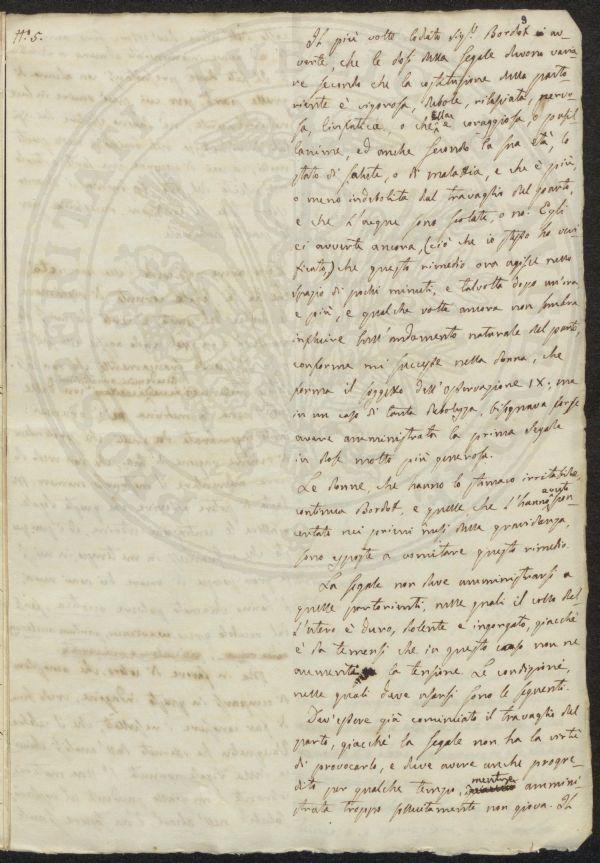 9
H. 5.
Il più volte lodato Sig.r Bordot ci av-
verte, che le dosi della segale devono varia-
re secondo che la costituzione della parto-
riente è vigorosa, debole, rilasciata, nervo-
sa, linfatica, o che ella è coraggiosa, o pusil-
lanime, ed anche secondo la sua età, lo
stato di salute, o di malattia, e che è più,
o meno indebolita dal travaglio del parto,
e che l'acque sono scolate, o no. Egli
ci avverte ancora, (ciò che io stesso ho veri-
ficato,) che questo rimedio ora agisce nello
spazio di pochi minuti, e talvolta dopo un'ora
e più, e qualche volta ancora non sembra
influire sull'andamento naturale del parto,
conforme mi successe nella donna, che
forma il soggetto dell'Osservazione IX; ma
in un caso di tanta debolezza, bisognava forse
avere amministrata la prima segale
in dose molto più generosa.
Le donne, che hanno lo stomaco irritabile,
continua Bordot, e quelle che l'hanno avuto scon-
certato nei primi mesi della gravidanza,
sono esposte a vomitare questo rimedio.
La segale non deve amministrarsi a
quelle partorienti, nelle quali il collo del-
l'utero è duro, dolente e ingorgato, giacchè
è da temersi che in questo caso non ne
aumenti la tensione. Le condizioni,
nelle quali deve usarsi sono le seguenti.
Dev'essere già cominciato il travaglio del
parto, giacchè la segale non ha la virtù
di provocarlo, e deve avere anche progre-
dito per qualche tempo, mentre ammini-
strata troppo sollecitamente non giova. Il